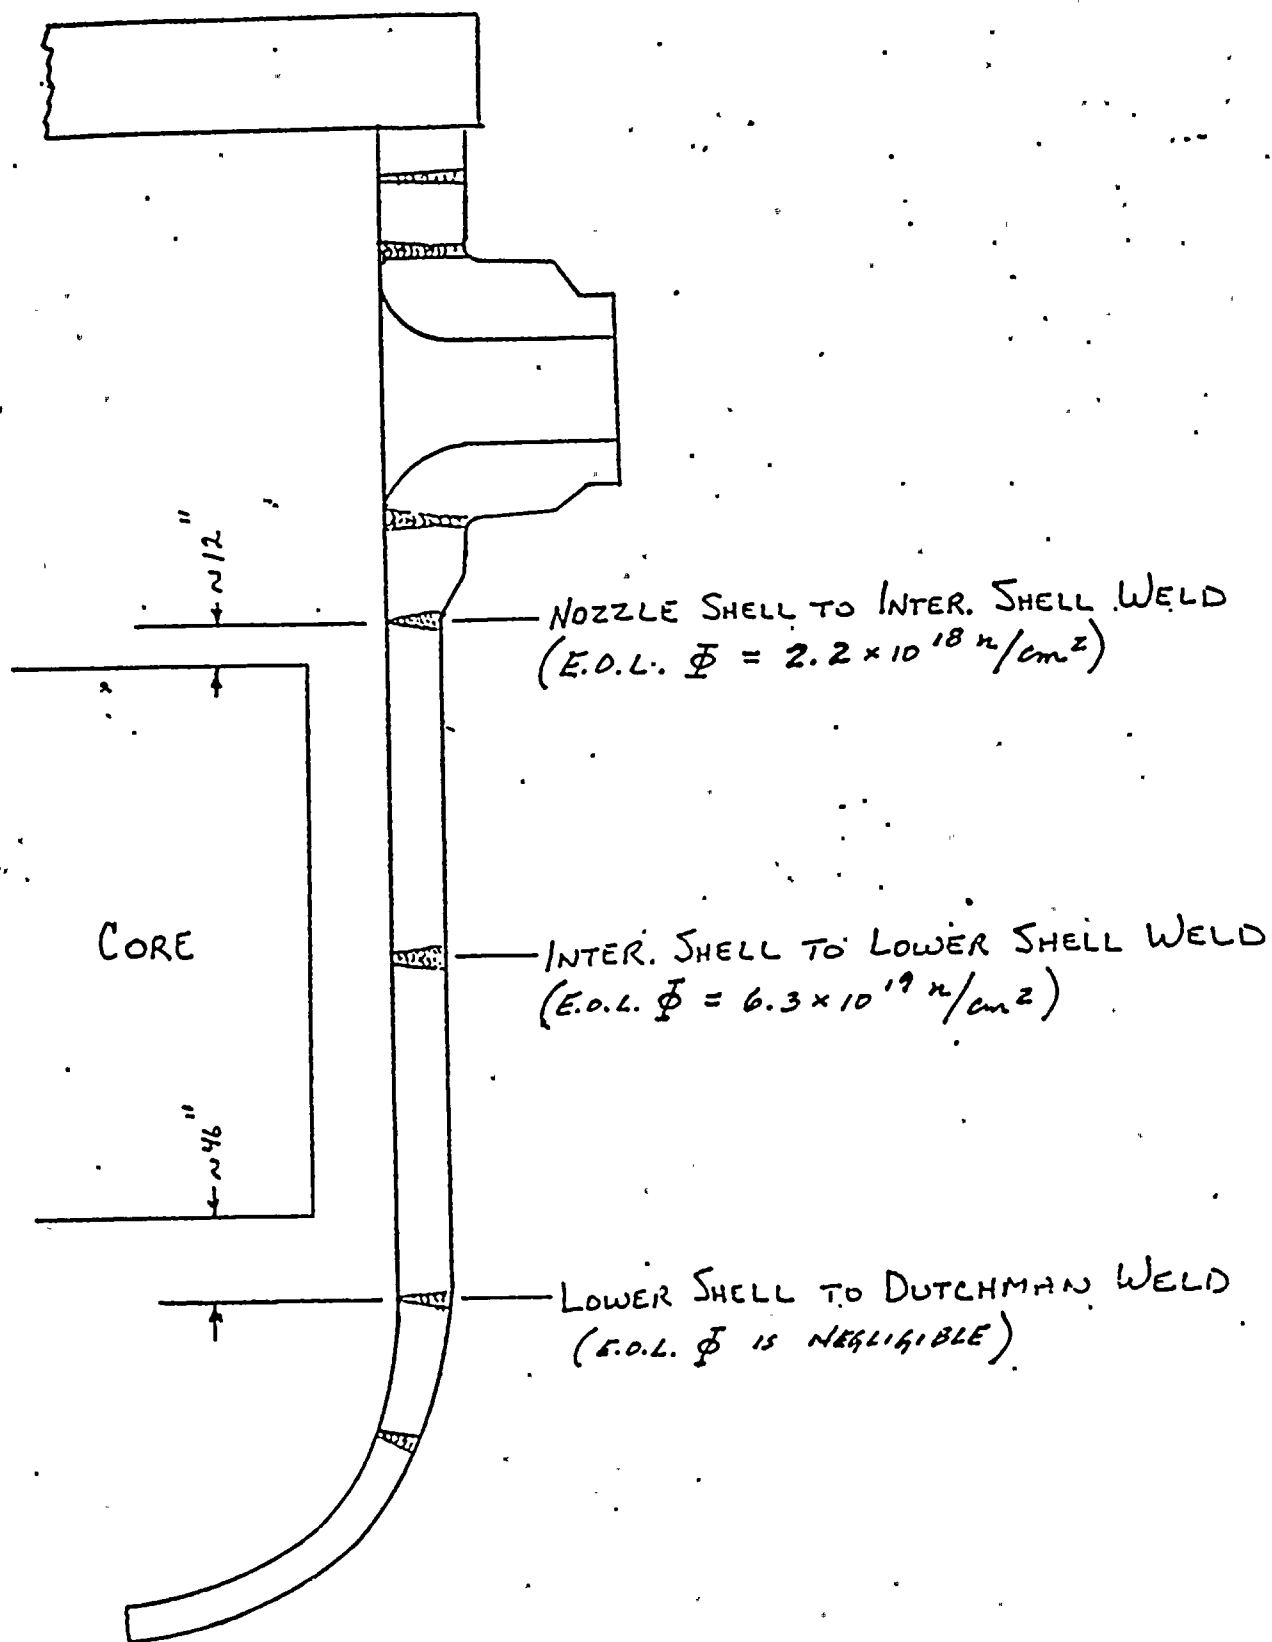 ~12"
NOZZLE SHELL TO INTER. SHELL WELD
(E.O.L. Φ = 2.2 × 10¹⁸ n/cm²)
CORE
INTER. SHELL TO LOWER SHELL WELD
(E.O.L. Φ = 6.3 × 10¹⁹ n/cm²)
~46"
LOWER SHELL TO DUTCHMAN WELD
(E.O.L. Φ IS NEGLIGIBLE)